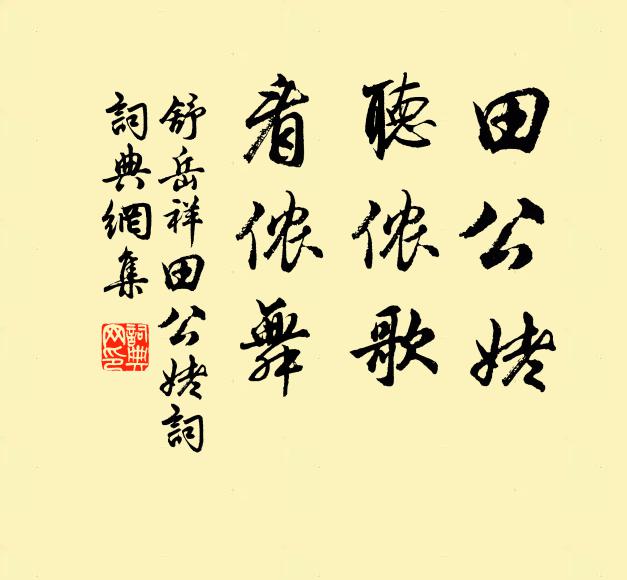 田公姥
聽侬歌
看侬舞
舒岳祥田公姥詞
詞典網集
詞典网印